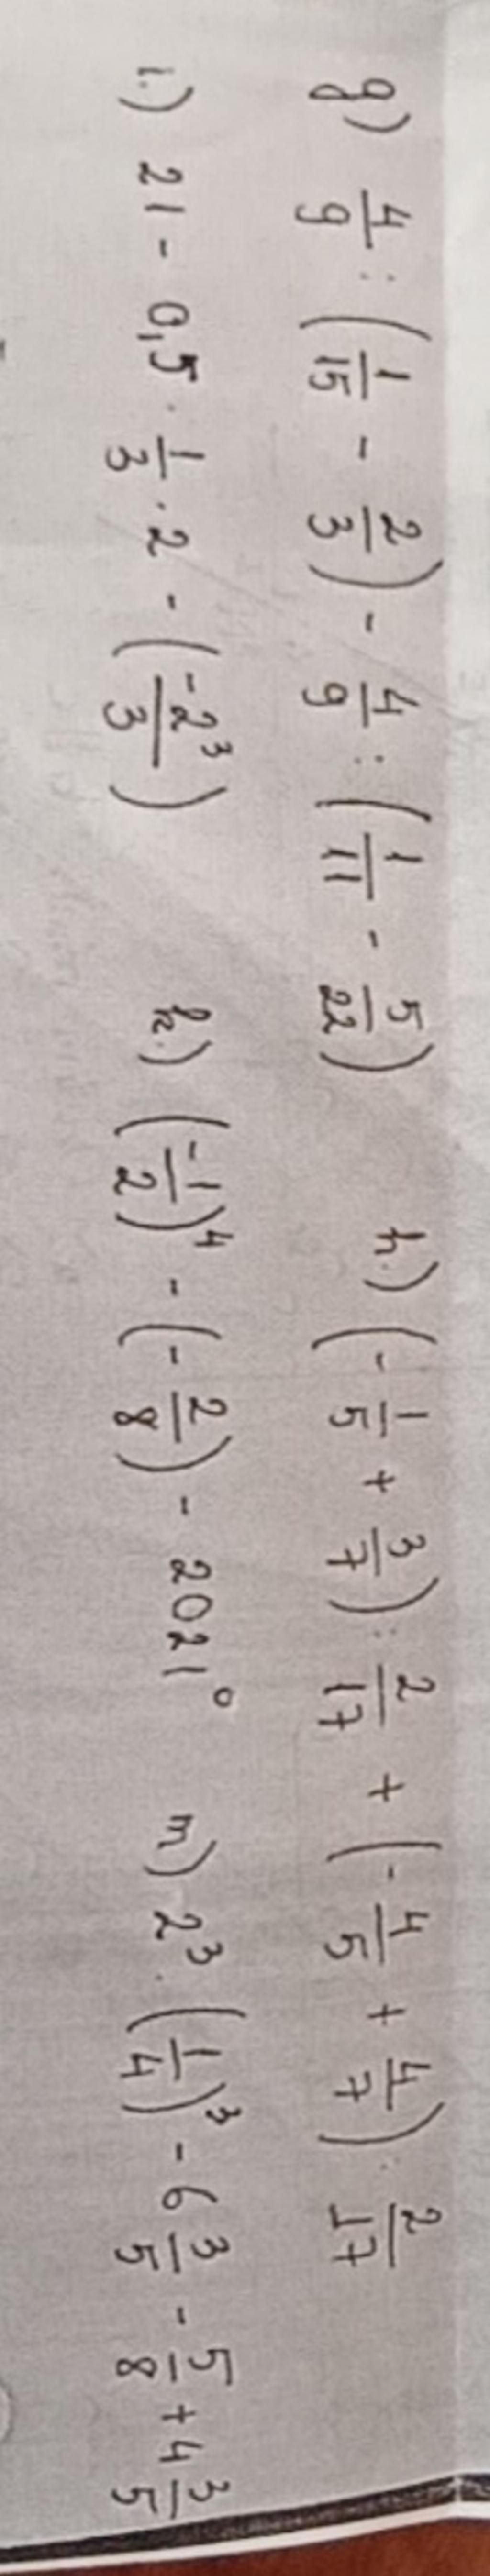 g) 4/9 : (1/15 - 2/3) - 4/9 : (1/11 - 5/22) h.) (- 1/5 + 3/7) : 2/17 + (- 4/5 + 4/7) : 2/17
i.) 21 - 0,5 · 1/3 · 2 - (-2³/3) k.) (-1/2)⁴ - (- 2/8) - 2021⁰ m) 2³ · (1/4)³ - 6 3/5 - 5/8 + 4 3/5